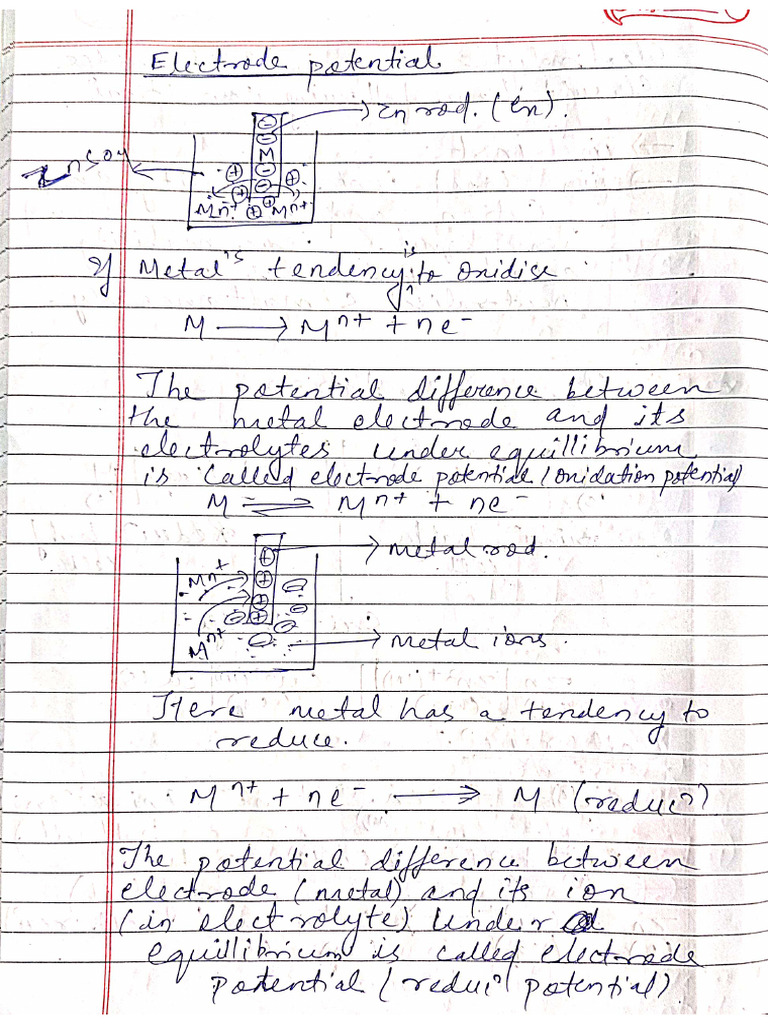 Electrode potential
Zn rod. (Zn).
ZnSO4
M
Mn+ Mn+
If Metal's tendency is to Oxidise
M → Mn+ + ne-
The potential difference between
the metal electrode and its
electrolytes under equillibrium
is called electrode potential (Oxidation potential)
M ⇌ Mn+ + ne-
Metal rod.
Mn+
Mn+
metal ions.
Here metal has a tendency to
reduce.
Mn+ + ne- → M (reducn)
The potential difference between
electrode (metal) and its ion
(in electrolyte) under
equillibrium is called electrode
potential (reducn potential)